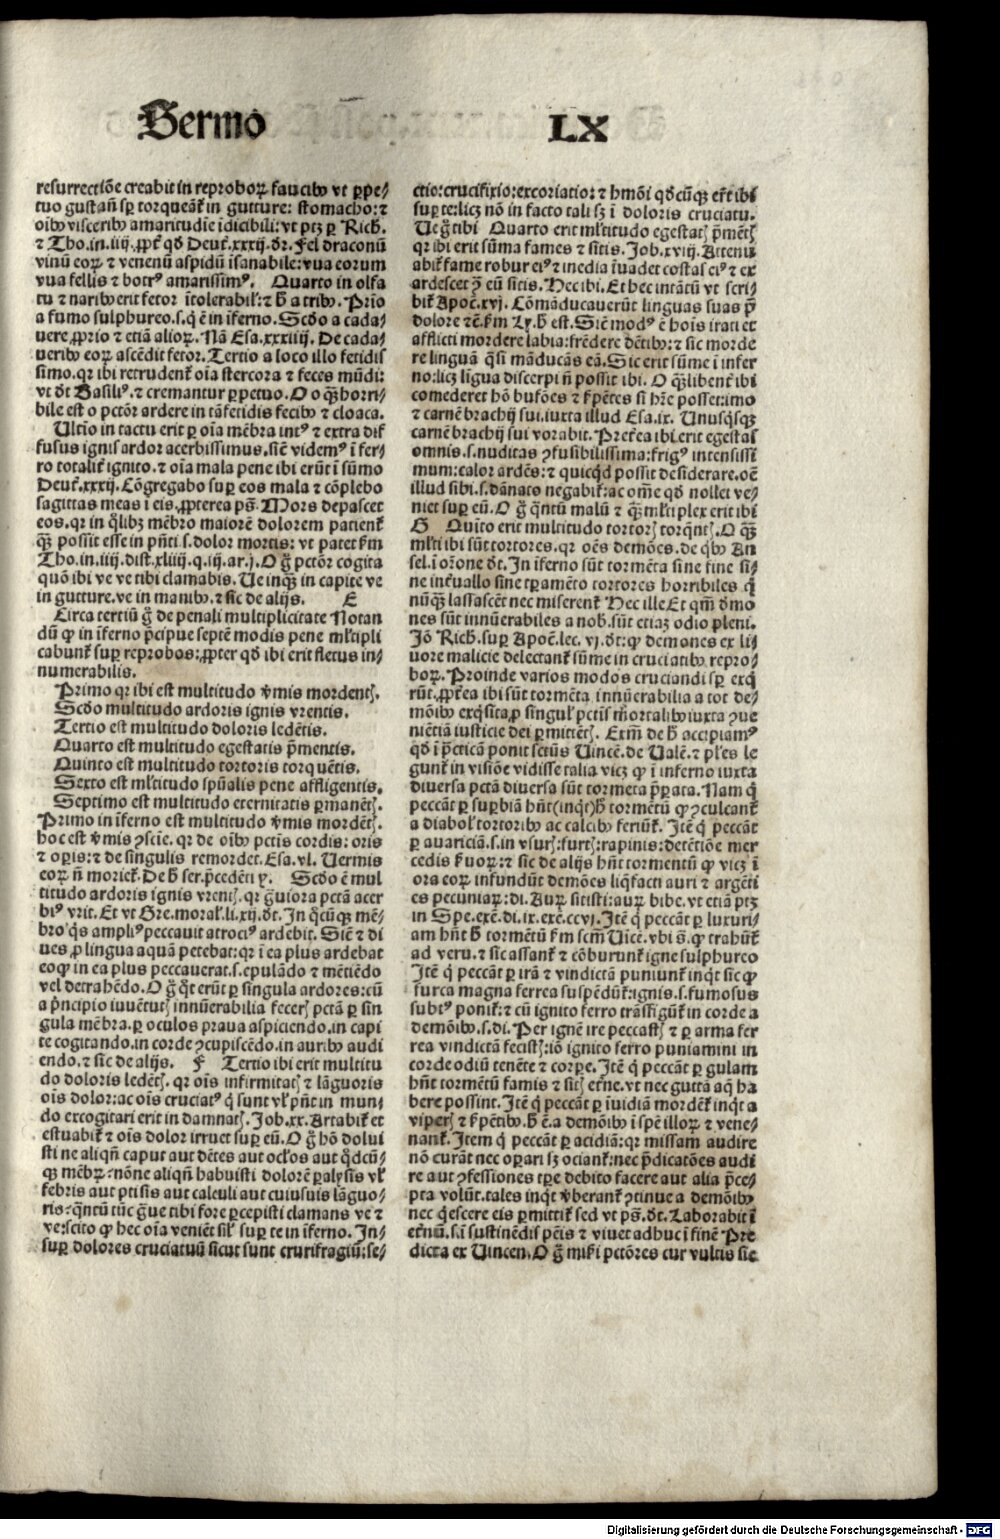 Sermo LX
resurrectiōe creabit in reproboꝝ faucibꝰ vt ꝑpe/
tuo gustañ sꝑ torqueāt̃ in gutture: stomacho: ⁊
oībꝰ visceribꝰ amaritudīe īdicibili: vt ptꝫ ꝑ Rich.
⁊ Tho. in .iiij. ꝓpt̃ qd̃ Deut̃. xxxij. dr̃. Fel draconū
vinū eoꝝ ⁊ venenū aspidū īsanabile: vua eorum
vua fellis ⁊ botrꝰ amarissimꝰ. Quarto in olfa
tu ⁊ naribꝰ erit fetor ītolerabiĺ: ⁊ h̃ a tribꝰ. Prīo
a fumo sulphureo .s. q̃ ē in īferno. Scd̃o a cada/
uere ꝓprio ⁊ etiā alioꝝ. Nā Esa. xxxiiij. De cada/
ueribꝰ eoꝝ ascēdit fetor. Tertio a loco illo fetidis
simo. qr ibi retrudent̃ oīa stercora ⁊ feces mūdi:
vt dt̃ Basiliꝰ. ⁊ cremantur ꝑpetuo. O o q̃ꝫ horri/
bile est o pctōr ardere in tā fetidis fecibꝰ ⁊ cloaca.
Ultīo in tactu erit ꝑ oīa mēbra intꝰ ⁊ extra dif
fusus ignis ardor acerbissimus. siĉ videmꝰ ī fer/
ro totalit̃ ignito. ⁊ oīa mala pene ibi erūt ī sūmo
Deut̃. xxxij. Cōgregabo suꝑ eos mala ⁊ cōplebo
sagittas meas ī eis. ꝓpterea pṡ. Mors depascet
eos. qr in q̃libꝫ mēbro maiorē dolorem patient̃
q̃ꝫ possit esse in pñti .s. dolor mortis: vt patet ẜm
Tho. in .iiij. dist. xliiij. q. iij. ar. j. O g̃ pctōr cogita
quō ibi ve ve tibi clamabis. Ue inq̃ꝫ in capite ve
in gutture. ve in manibꝰ. ⁊ sic de alijs. E
Circa tertiū g̃ de penali multiplicitate Notan
dū ꝙ in īferno p̃cipue septē modis pene ml̃tipli
cabunt̃ suꝑ reprobos: ꝓpter qd̃ ibi erit fletus in/
numerabilis.
Primo qr ibi est multitudo v̓mis mordentꝭ.
Scd̃o multitudo ardoris ignis vrentis.
Tertio est multitudo doloris ledētis.
Quarto est multitudo egestatis p̃mentis.
Quinto est multitudo tortoris torquētis.
Sexto est ml̃titudo spūalis pene affligentis.
Septimo est multitudo eternitatis ꝑmanētꝭ.
Primo in īferno est multitudo v̓mis mordētꝭ.
hoc est v̓mis ꝯsciē. qr de oībꝰ pctis cordis: oris
⁊ oꝑis: ⁊ de singulis remordet. Esa. vl. Uermis
eoꝝ ñ moriet̃. De h̃ ser. p̃cedēti ꝩ. Scd̃o ē mul
titudo ardoris ignis vrentꝭ. qr g̃uiora pctā acer
biꝰ vrit. Et vt Gre. moraĺ. li. xij. dt̃. In q̃cūqꝫ mē/
bro q̓s ampliꝰ peccauit atrociꝰ ardebit. Siĉ ⁊ di
ues ꝑ lingua aquā petebat: qr ī ea plus ardebat
eo ꝙ in ea plus peccauerat .s. epulādo ⁊ mētiēdo
vel detrahēdo. O g̃ q̃t erūt ꝑ singula ardores: cū
a p̃ncipio iuuētutꝭ innūerabilia fecerꝭ pctā ꝑ sin
gula mēbra. ꝑ oculos praua aspiciendo. in capi
te cogitando. in corde ꝯcupiscēdo. in auribꝰ audi
endo. ⁊ sic de alijs. F Tertio ibi erit multitu
do doloris ledētꝭ. qr oīs infirmitatꝭ ⁊ lāguoris
oīs dolor: ac oīs cruciatꝰ q̃ sunt vĺ pñt in mun/
do excogitari erit in damnatꝭ. Job. xx. Artabit̃ et
estuabit̃ ⁊ oīs dolor irruet suꝑ eū. O g̃ hō dolui
sti ne aliqñ caput aut dētes aut ocl̃os aut q̃dcū/
qꝫ mēbꝝ: nōne aliqñ habuisti dolorē ꝑalysis vĺ
febris aut ptisis aut calculi aut cuiusuis lāguo/
ris: q̃ntū tūc g̃ue tibi fore ꝑcepisti clamans ve ⁊
ve: scito ꝙ hec oīa veniēt siĺ suꝑ te in īferno. In/
suꝑ dolores cruciatuū sicut sunt crurifragiū: se/
ctio: crucifixio: excoriatio: ⁊ hmōi qd̃cūqꝫ er̃t ibi
suꝑ te: licꝫ nō in facto tali sꝫ ī doloris cruciatu.
Ue g̃ tibi Quarto erit ml̃titudo egestatꝭ p̃mētꝭ
qr ibi erit sūma fames ⁊ sitis. Job. xviij. Attenu
abit̃ fame robur eiꝰ ⁊ inedia īuadet costas eiꝰ ⁊ ex
ardescet ꝯ̃ eū sitis. Hec ibi. Et hec intātū vt scri/
bit̃ Apoc̃. xvj. Cōmāducauerūt linguas suas p̃
dolore ⁊c̃. ẜm Ly. h̃ est. Siĉ modꝰ ē hoīs irati et
afflicti mordere labia: frēdere dētibꝰ: ⁊ sic morde
re linguā q̃si māducās eā. Sic erit sūme ī infer
no: licꝫ līgua discerpi ñ possit ibi. O q̃ꝫ libent̃ ibi
comederet hō bufōes ⁊ ẜpētes si hr̃e posset: imo
⁊ carnē brachij sui. iuxta illud Esa. ix. Unusq̓sqꝫ
carnē brachij sui vorabit. Preter̃ea ibi erit egestas
omnis .s. nuditas ꝯfusibilissima: frigꝰ intensissi
mum: calor ardēs: ⁊ quicq̓d possit desiderare. oē
illud sibi .s. dānato negabit̃: ac om̄e qd̃ nollet ve/
niet suꝑ eū. O g̃ q̃ntū malū ⁊ q̃ꝫ ml̃tiplex erit ibi
G Quīto erit multitudo tortorꝭ torq̃ntꝭ. O q̃ꝫ
ml̃ti ibi sūt tortores. qr oēs demōes. de q̓bꝰ An
sel. ī orōne dt̃. In īferno sūt tormēta sine fine si/
ne int̃uallo sine tꝑamēto tortores horribiles q̓
nūq̃ꝫ lassascēt nec miserent̃ Hec ille Et qm̃ demo
nes sūt innūerabiles a nob̃. sūt etiaꝫ odio pleni.
Jō Rich̃. suꝑ Apoc̃. lec. vj. dt̃: ꝙ demones ex li/
uore malicie delectant̃ sūme in cruciatibꝰ repro/
boꝝ. Proinde varios modos cruciandi sꝑ exq̓
rūt. ꝓpt̃ea ibi sūt tormēta innūerabilia a tot de/
mōibꝰ exq̓sita. ꝓ singuĺ pctis mortalibꝰ iuxta ꝯue
niētiā iusticie dei ꝑmittētꝭ. Exm̃ de h̃ accipiamꝰ
qd̃ ī p̃cticā ponit sctūs Uincē. de Ualē. ⁊ pl̃es le
gunt̃ in visiōe vidisse talia vicꝫ ꝙ ī inferno iuxta
diuersa pctā diuersa sūt tormēta p̃parata. Nam q̓
peccāt ꝑ suꝑbiā hñt (inq̓t) h̃ tormētū ꝙ ꝯculcant̃
a diaboĺ tortoribꝰ ac calcibꝰ feriūt̃. Itē q̓ peccāt
ꝑ auariciā .s. in vsurꝭ: furtꝭ: rapinis: detētiōe mer
cedis ẜuoꝝ: ⁊ sic de alijs hñt tormentū ꝙ vicꝫ ī
ora eoꝝ infundūt demōes liq̃facti auri ⁊ argēti
es pecuniaꝝ: di. Auꝝ sitisti: auꝝ bibe. vt etiā ptꝫ
in Spe. exē. di. ix. exē. ccvj. Itē q̓ peccāt ꝑ luxuri/
am hñt h̃ tormētū ẜm scm̃ Uincē. vbi s̃. ꝙ trahūt̃
ad veru. ⁊ sic assant̃ ⁊ cōburunt̃ igne sulphureo
Itē q̓ peccāt ꝑ irā ⁊ vindictā puniunt̃ inq̓t sic ꝙ
furca magna ferrea suspēdūt̃: ignis .s. fumosus
subtꝰ ponit̃: ⁊ cū ignito ferro trāsfigūt̃ in corde a
demōibꝰ .s. di. Per ignē ire peccastꝭ ⁊ ꝑ arma fer
rea vindictā fecistꝭ: iō ignito ferro puniamini in
corde odiū tenēte ⁊ corꝑe. Itē q̓ peccāt ꝑ gulam
hñt tormētū famis ⁊ sitꝭ et̃ne. vt nec guttā aq̃ ha
bere possint. Itē q̓ peccāt ꝑ īuidiā mordēt̃ inq̓t a
viperꝭ ⁊ ẜpētibꝰ. h̃ ē. a demōibꝰ ī spē illoꝝ ⁊ vene/
nant̃. Item q̓ peccāt ꝑ acidiā: qr missam audire
nō curāt nec oꝑari sꝫ ociant̃: nec p̃dicatōes audi
re aut ꝯfessiones tꝑe debito facere aut alia p̃ce/
pta volūt. tales inq̓t v̓berant̃ ꝯtinue a demōibꝰ
nec q̓escere eis ꝑmittit̃ sed vt pṡ. dt̃. Laborabit ī
et̃nū. s. ī sustinēdis pēis ⁊ viuet adhuc ī finē Pre
dicta ex Uincen. O g̃ miẜi pctōres cur vultis sic
Digitalisierung gefördert durch die Deutsche Forschungsgemeinschaft - DFG